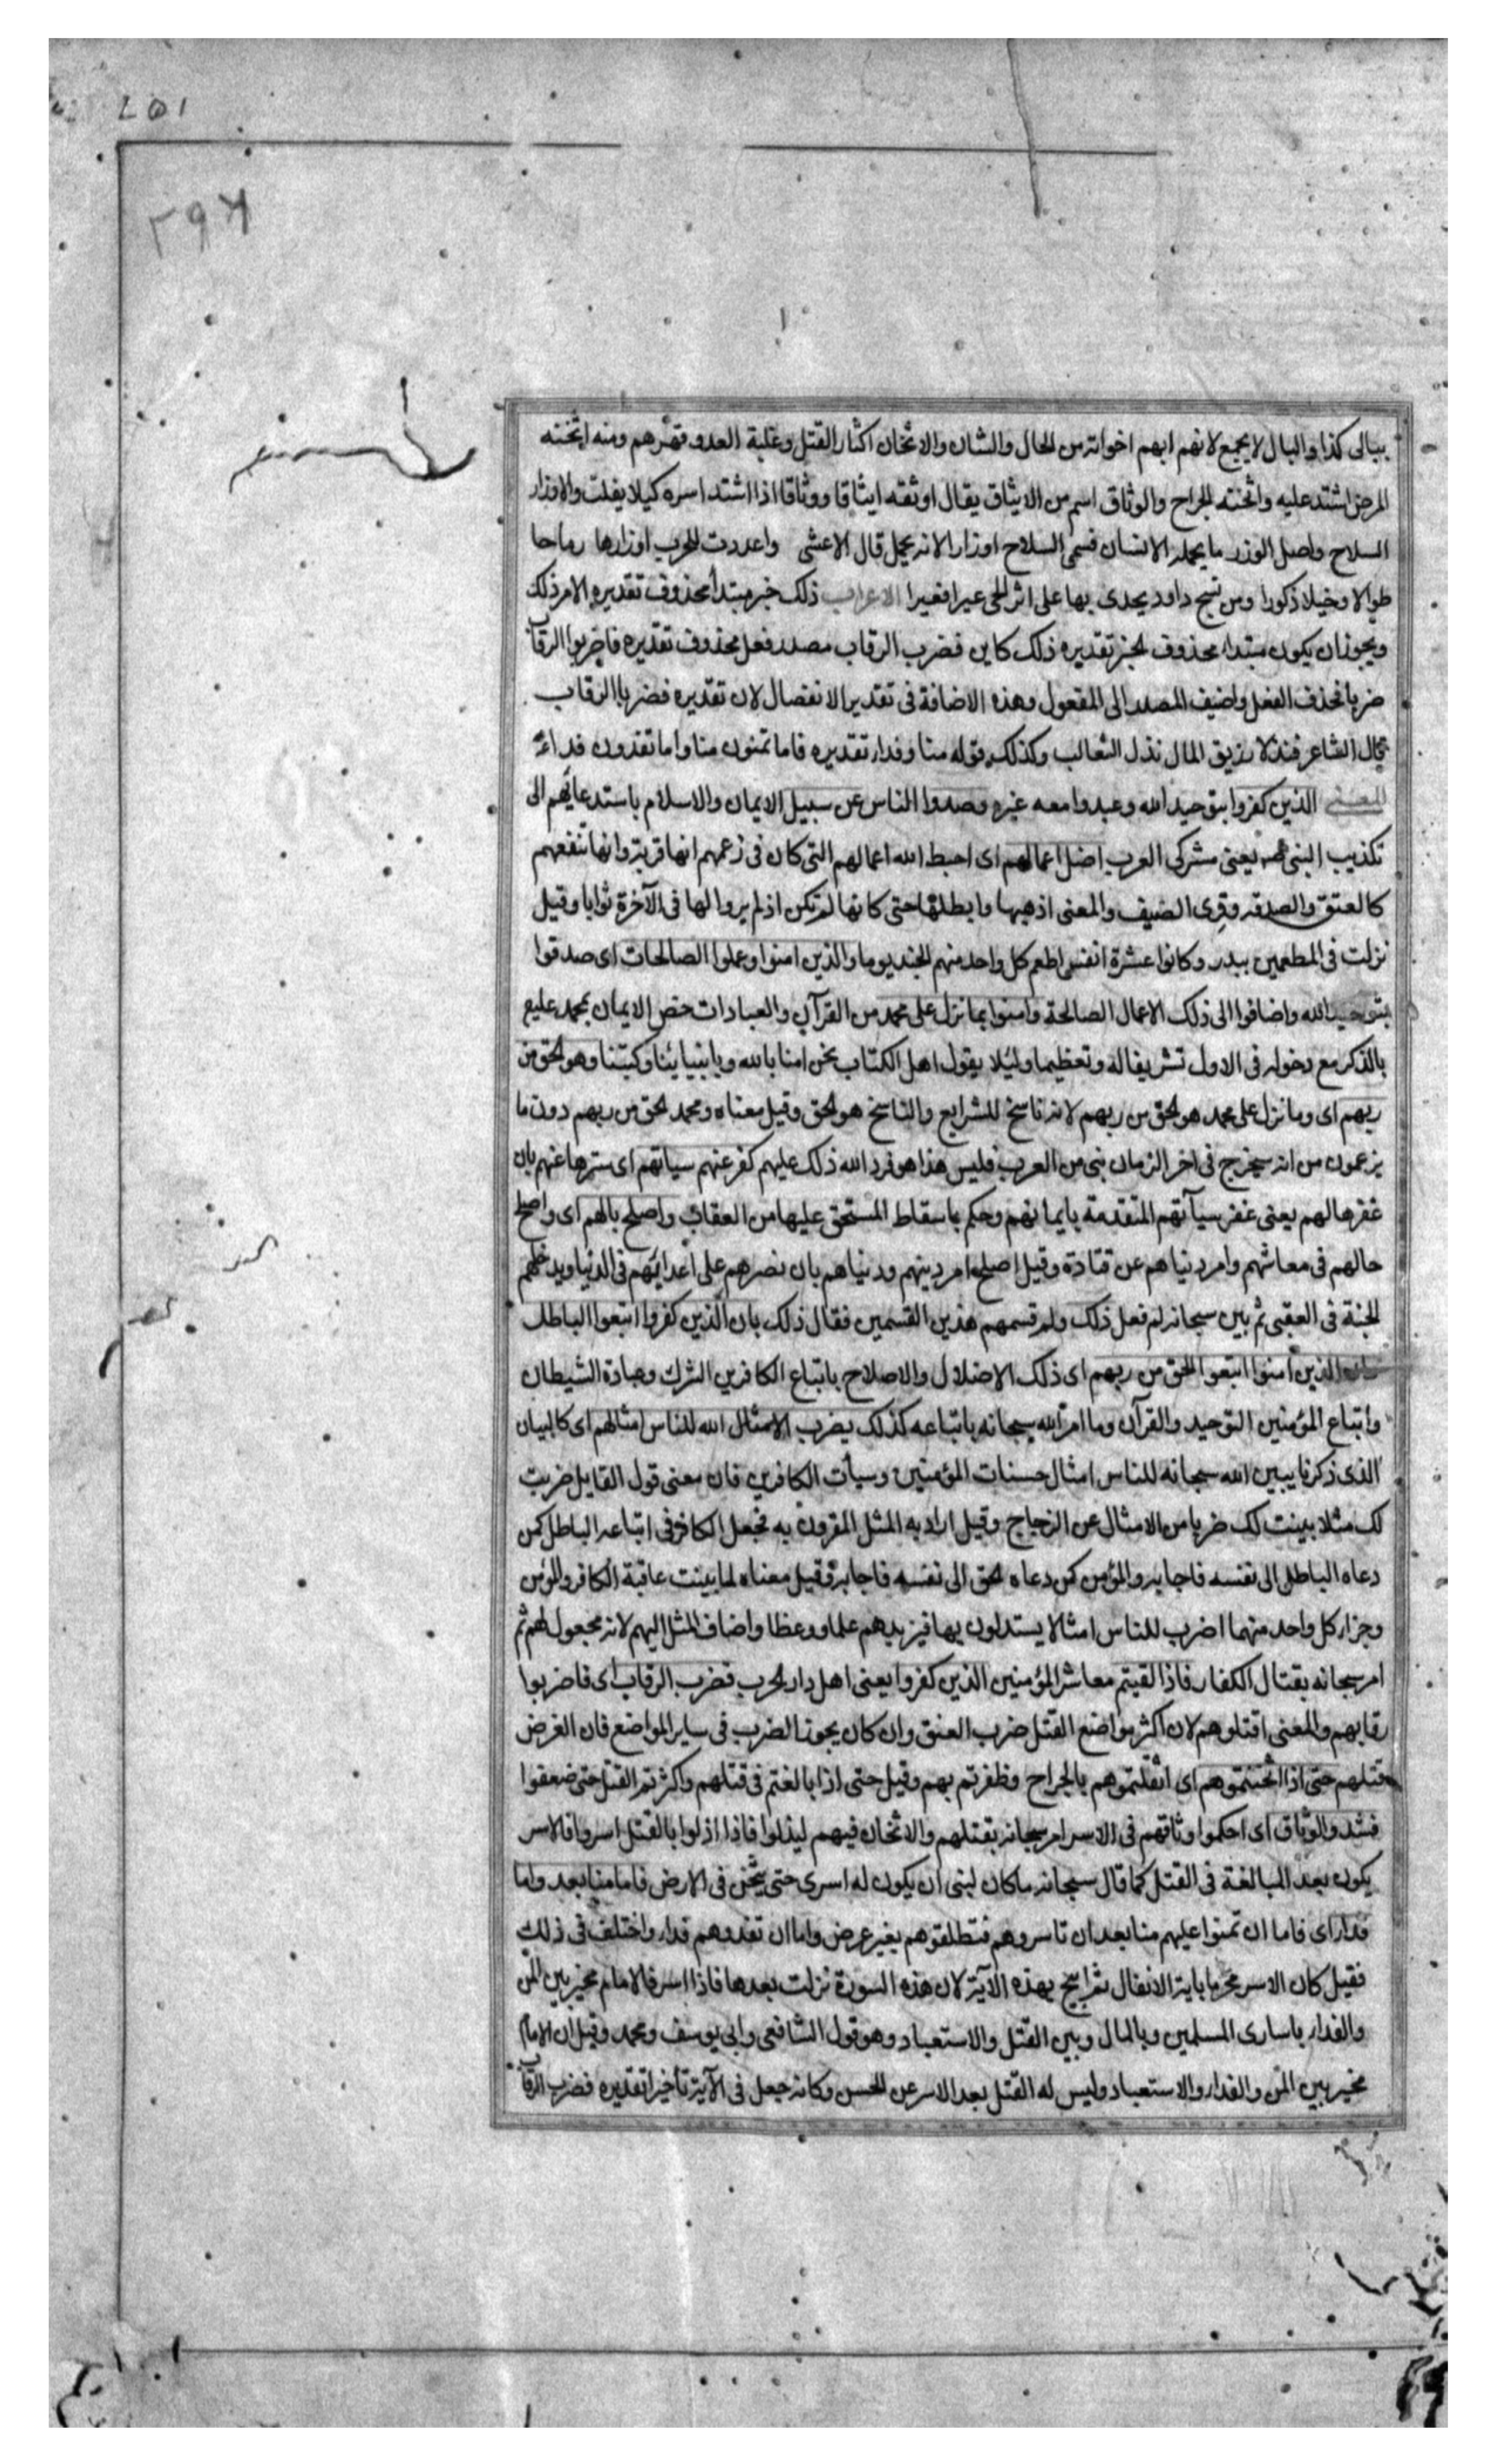 ببالى كذا والبال لا يجمع لانهم ابهم اخواته من الحال والشان والاثخان اكثار القتل وغلبة العدو قهرهم ومنه اثخنه
المرض اشتد عليه واثخنته الجراح والوثاق اسم من الايثاق يقال اوثقه ايثاقا ووثاقا اذا اشتد اسره كيلا يفلت والاوزار
السلاح واصل الوزر ما يحمله الانسان فسمى السلاح اوزارا لانه يحمل قال الاعشى واعددت للحرب اوزارها رماحا
طوالا وخيلا ذكورا ومن نسج داود يحدى بها على اثر الحى عيرا فعيرا الاعراب ذلك خبر مبتدأ محذوف تقديره الامر ذلك
ويجوز ان يكون مبتداء محذوف الخبر تقديره ذلك كاين فضرب الرقاب مصدر فعل محذوف تقديره فاضربوا الرقاب
ضربا فحذف الفعل واضيف المصدر الى المفعول وهذه الاضافة فى تقدير الانفصال لان تقديره فضربا الرقاب
قال الشاعر فندلا زريق المال ندل الثعالب وكذلك قوله منا وفداء تقديره فاما تمنون منا واما تفدون فداء
المعنى الذين كفروا بتوحيد الله وعبدوا معه غيره وصدوا الناس عن سبيل الايمان والاسلام باستدعائهم الى
تكذيب النبى يعنى مشركى العرب اضل اعمالهم اى احبط الله اعمالهم التى كان فى زعمهم انها قربة وانها تنفعهم
كالعتق والصدقه وقرى الضيف والمعنى اذهبها وابطلها حتى كانها لم تكن اذ لم يروا لها فى الآخرة ثوابا وقيل
نزلت فى المطعمين ببدر وكانوا عشرة انفس اطعم كل واحد منهم الجند يوما والذين امنوا وعملوا الصالحات اى صدقوا
بتوحيد الله واضافوا الى ذلك الاعمال الصالحة وامنوا بما نزل على محمد من القرآن والعبادات خص الايمان بمحمد عليع
بالذكر مع دخوله فى الاول تشريفا له وتعظيما وليلا يقول اهل الكتاب نحن امنا بالله وبانبيائنا وكتبنا وهو الحق من
ربهم اى وما نزل على محمد هو الحق من ربهم لانه ناسخ للشرايع والناسخ هو الحق وقيل معناه ومحمد الحق من ربهم دون ما
يزعمون من انه سيخرج فى اخر الزمان نبى من العرب فليس هذا هو فرد الله ذلك عليهم كفر عنهم سياتهم اى سترها عنهم بان
غفرها لهم يعنى غفر سيآتهم المتقدمة بايمانهم وحكم باسقاط المستحق عليها من العقاب واصلح بالهم اى واصلح
حالهم فى معاشهم وامر دنياهم عن قتادة وقيل اصلح امر دينهم ودنياهم بان نصرهم على اعدائهم فى الدنيا ويدخلهم
الجنة فى العقبى ثم بين سبحانه لم فعل ذلك ولم قسمهم هذين القسمين فقال ذلك بان الذين كفروا اتبعوا الباطل
وان الذين امنوا اتبعوا الحق من ربهم اى ذلك الاضلال والاصلاح باتباع الكافرين الشرك وعبادة الشيطان
واتباع المؤمنين التوحيد والقرآن وما امر الله سبحانه باتباعه كذلك يضرب الامثال الله للناس امثالهم اى كالبيان
الذى ذكرنا يبين الله سبحانه للناس امثال حسنات المؤمنين وسيأت الكافرين فان معنى قول القايل ضربت
لك مثلا بينت لك ضربا من الامثال عن الزجاج وقيل اراد به المثل المقرون به فجعل الكافر فى اتباعه الباطل كمن
دعاه الباطل الى نفسه فاجابه والمؤمن كمن دعاه الحق الى نفسه فاجابه وقيل معناه لما بينت عاقبة الكافر والمؤمن
وجزاء كل واحد منهما اضرب للناس امثالا يستدلون بها فيزيدهم علما ووعظا واضاف المثل اليهم لانه مجعول لهم ثم
امر سبحانه بقتال الكفار فاذا لقيتم معاشر المؤمنين الذين كفروا يعنى اهل دار الحرب فضرب الرقاب اى فاضربوا
رقابهم والمعنى اقتلوهم لان اكثر مواضع القتل ضرب العنق وان كان يجوز الضرب فى ساير المواضع فان الغرض
قتلهم حتى اذا اثخنتموهم اى اثقلتموهم بالجراح وظفرتم بهم وقيل حتى اذا بالغتم فى قتلهم واكثرتم القتل حتى ضعفوا
فشدوالوثاق اى احكموا وثاقهم فى الاسر امر سبحانه بقتلهم والاثخان فيهم ليذلوا فاذا اذلوا بالقتل اسروا فالاسر
يكون بعد المبالغة فى القتل كما قال سبحانه ماكان لنبى ان يكون له اسرى حتى يثخن فى الارض فاما منا بعد واما
فداء اى فاما ان تمنوا عليهم منا بعد ان تاسروهم فتطلقوهم بغير عرض واما ان تفدوهم فداء واختلف فى ذلك
فقيل كان الاسر محرما باية الانفال ثم ابيح بهذه الآية لان هذه السورة نزلت بعدها فاذا اسر فالامام مخير بين المن
والفداء باسارى المسلمين وبالمال وبين القتل والاستعباد وهو قول الشافعى وابى يوسف ومحمد وقيل ان الامام
مخير بين المن والفداء والاستعباد وليس له القتل بعد الاسر عن الحسن وكانه جعل فى الآية تأخيرا تقديره فضرب الرقاب